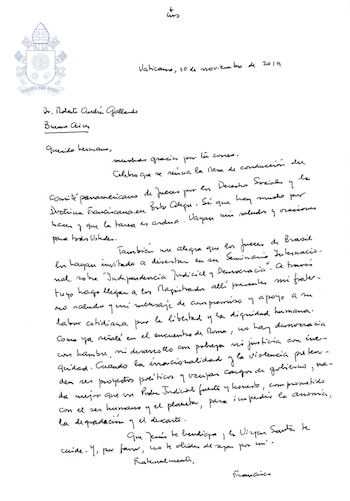 Vaticano, 10 de noviembre de 2019
Dr. Roberto Andrés Gallardo
Buenos Aires
Querido hermano,
muchas gracias por tu correo.
Celebro que se reúna la Mesa de conducción del
Comité panamericano de Jueces por los Derechos Sociales y la
Doctrina Franciscana en Porto Alegre. Sé que hay mucho por
hacer y que la tarea es ardua. Vayan mi saludo y oraciones
para todos Ustedes.
También me alegra que los Jueces de Brasil
los hayan invitado a disertar en un Seminario Internacio-
nal sobre "Independencia Judicial y Democracia". A través
tuyo hago llegar a los Magistrados allí presentes mi frater-
no saludo y mi mensaje de compromiso y apoyo a su
labor cotidiana por la libertad y la dignidad humana.
Como ya señalé en el encuentro de Roma, no hay democracia
con hambre, ni desarrollo con pobreza ni justicia con ine-
quidad. Cuando la irracionalidad y la violencia preten-
den ser proyectos políticos y ocupan cargos de gobierno, na-
da mejor que un Poder Judicial fuerte y honesto, comprometido
con el ser humano y el planeta, para impedir la anomia,
la degradación y el descarte.
Que Jesús te bendiga y la Virgen Santa te
cuide. Y, por favor, no te olvides de rezar por mí.
Fraternalmente,
Francisco